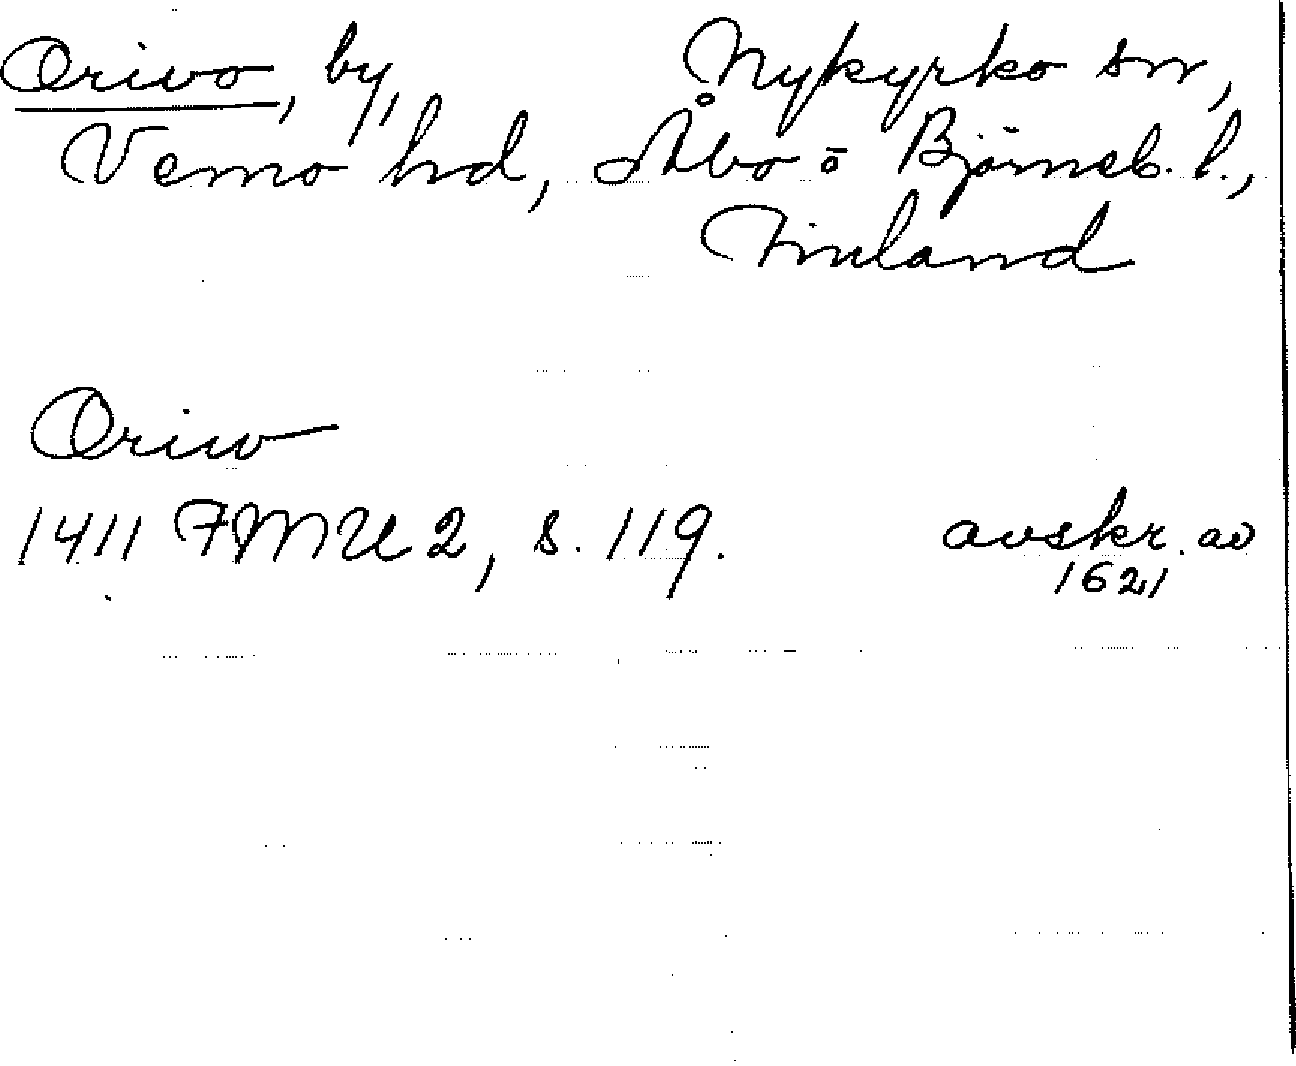 Orivo, by, Nykyrko sn,
Vemo hd, Åbo o Björneb. l.,
Finland
Oriw
1411 FMU 2, s. 119. avskr. av
1621